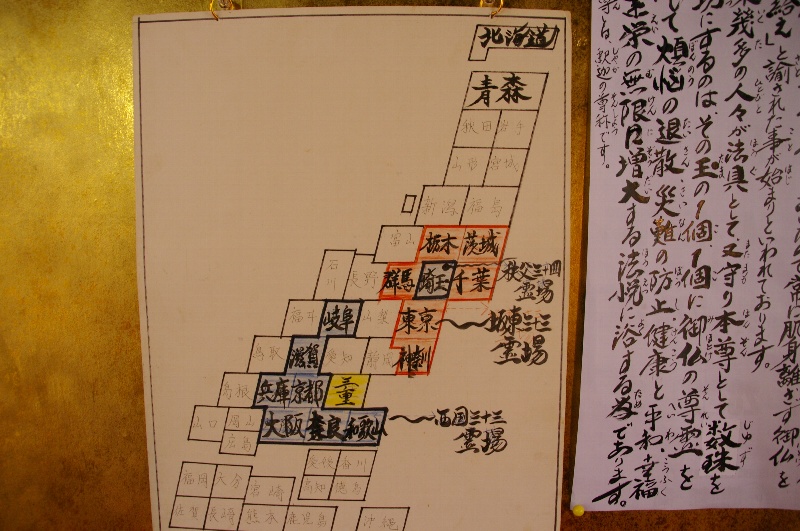 北海道
青森
秋田 岩手
山形 宮城
新潟 福島
富山 栃木 茨城
石川 長野 群馬 埼玉 千葉
秩父三十四
霊場
福井 岐阜 山梨 東京
坂東三十三
霊場
鳥取 滋賀 愛知 静岡 神奈川
島根 兵庫 京都 三重
山口 岡山 大阪 奈良 和歌山
広島
西国三十三
霊場
愛媛 香川
高知 徳島
福岡 大分 宮崎
佐賀 長崎 熊本 鹿児島 沖縄
常に肌身離さず御仏を
」と諭された事が始まりといわれております。
幾多の人々が法具として又守り本尊として数珠を
切にするのは、その玉の1個1個に御仏の尊霊を
して煩悩の退散、災難の防止、健康と平和、幸福
栄の無限に増大する法悦に浴する為であります。
釈迦の尊称です。